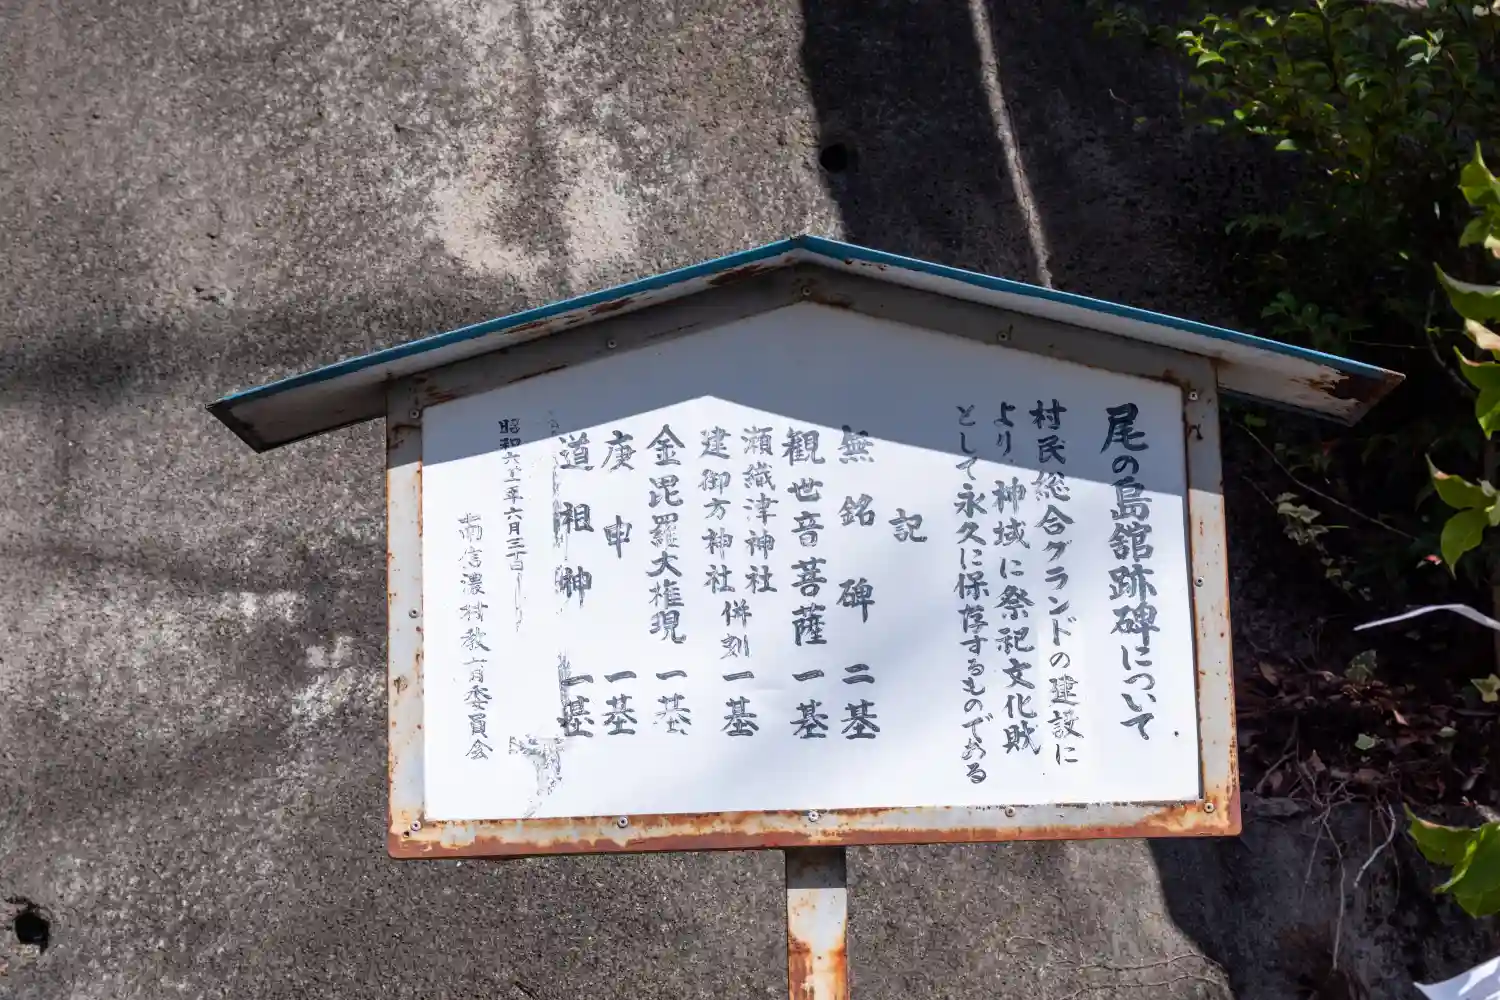 尾の島舘跡碑について
村民総合グランドの建設に
より、神域に祭祀文化財
として永久に保存するものである
記
無銘碑 二基
観世音菩薩 一基
瀬織津神社
建御方神社 併刻 一基
金毘羅大権現 一基
庚申 一基
道祖神 一基
昭和六二年六月三十日
南信濃村教育委員会